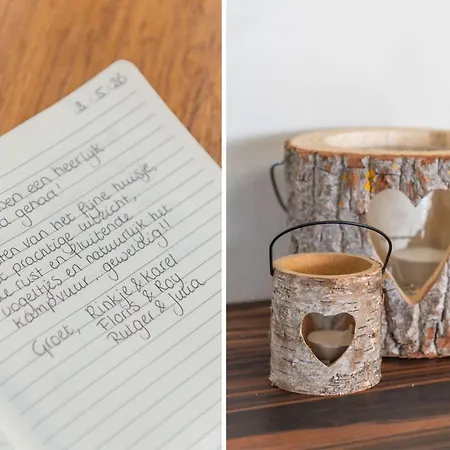 8.5.26
ben een heerlijk
gehad!
van het fijne huisje,
prachtige uitzicht,
rust en fluitende
vogeltjes en natuurlijk het
kampvuur. geweldig!!
Groet, Rinkje & Karel
Floris & Roy
Rutger & Julia